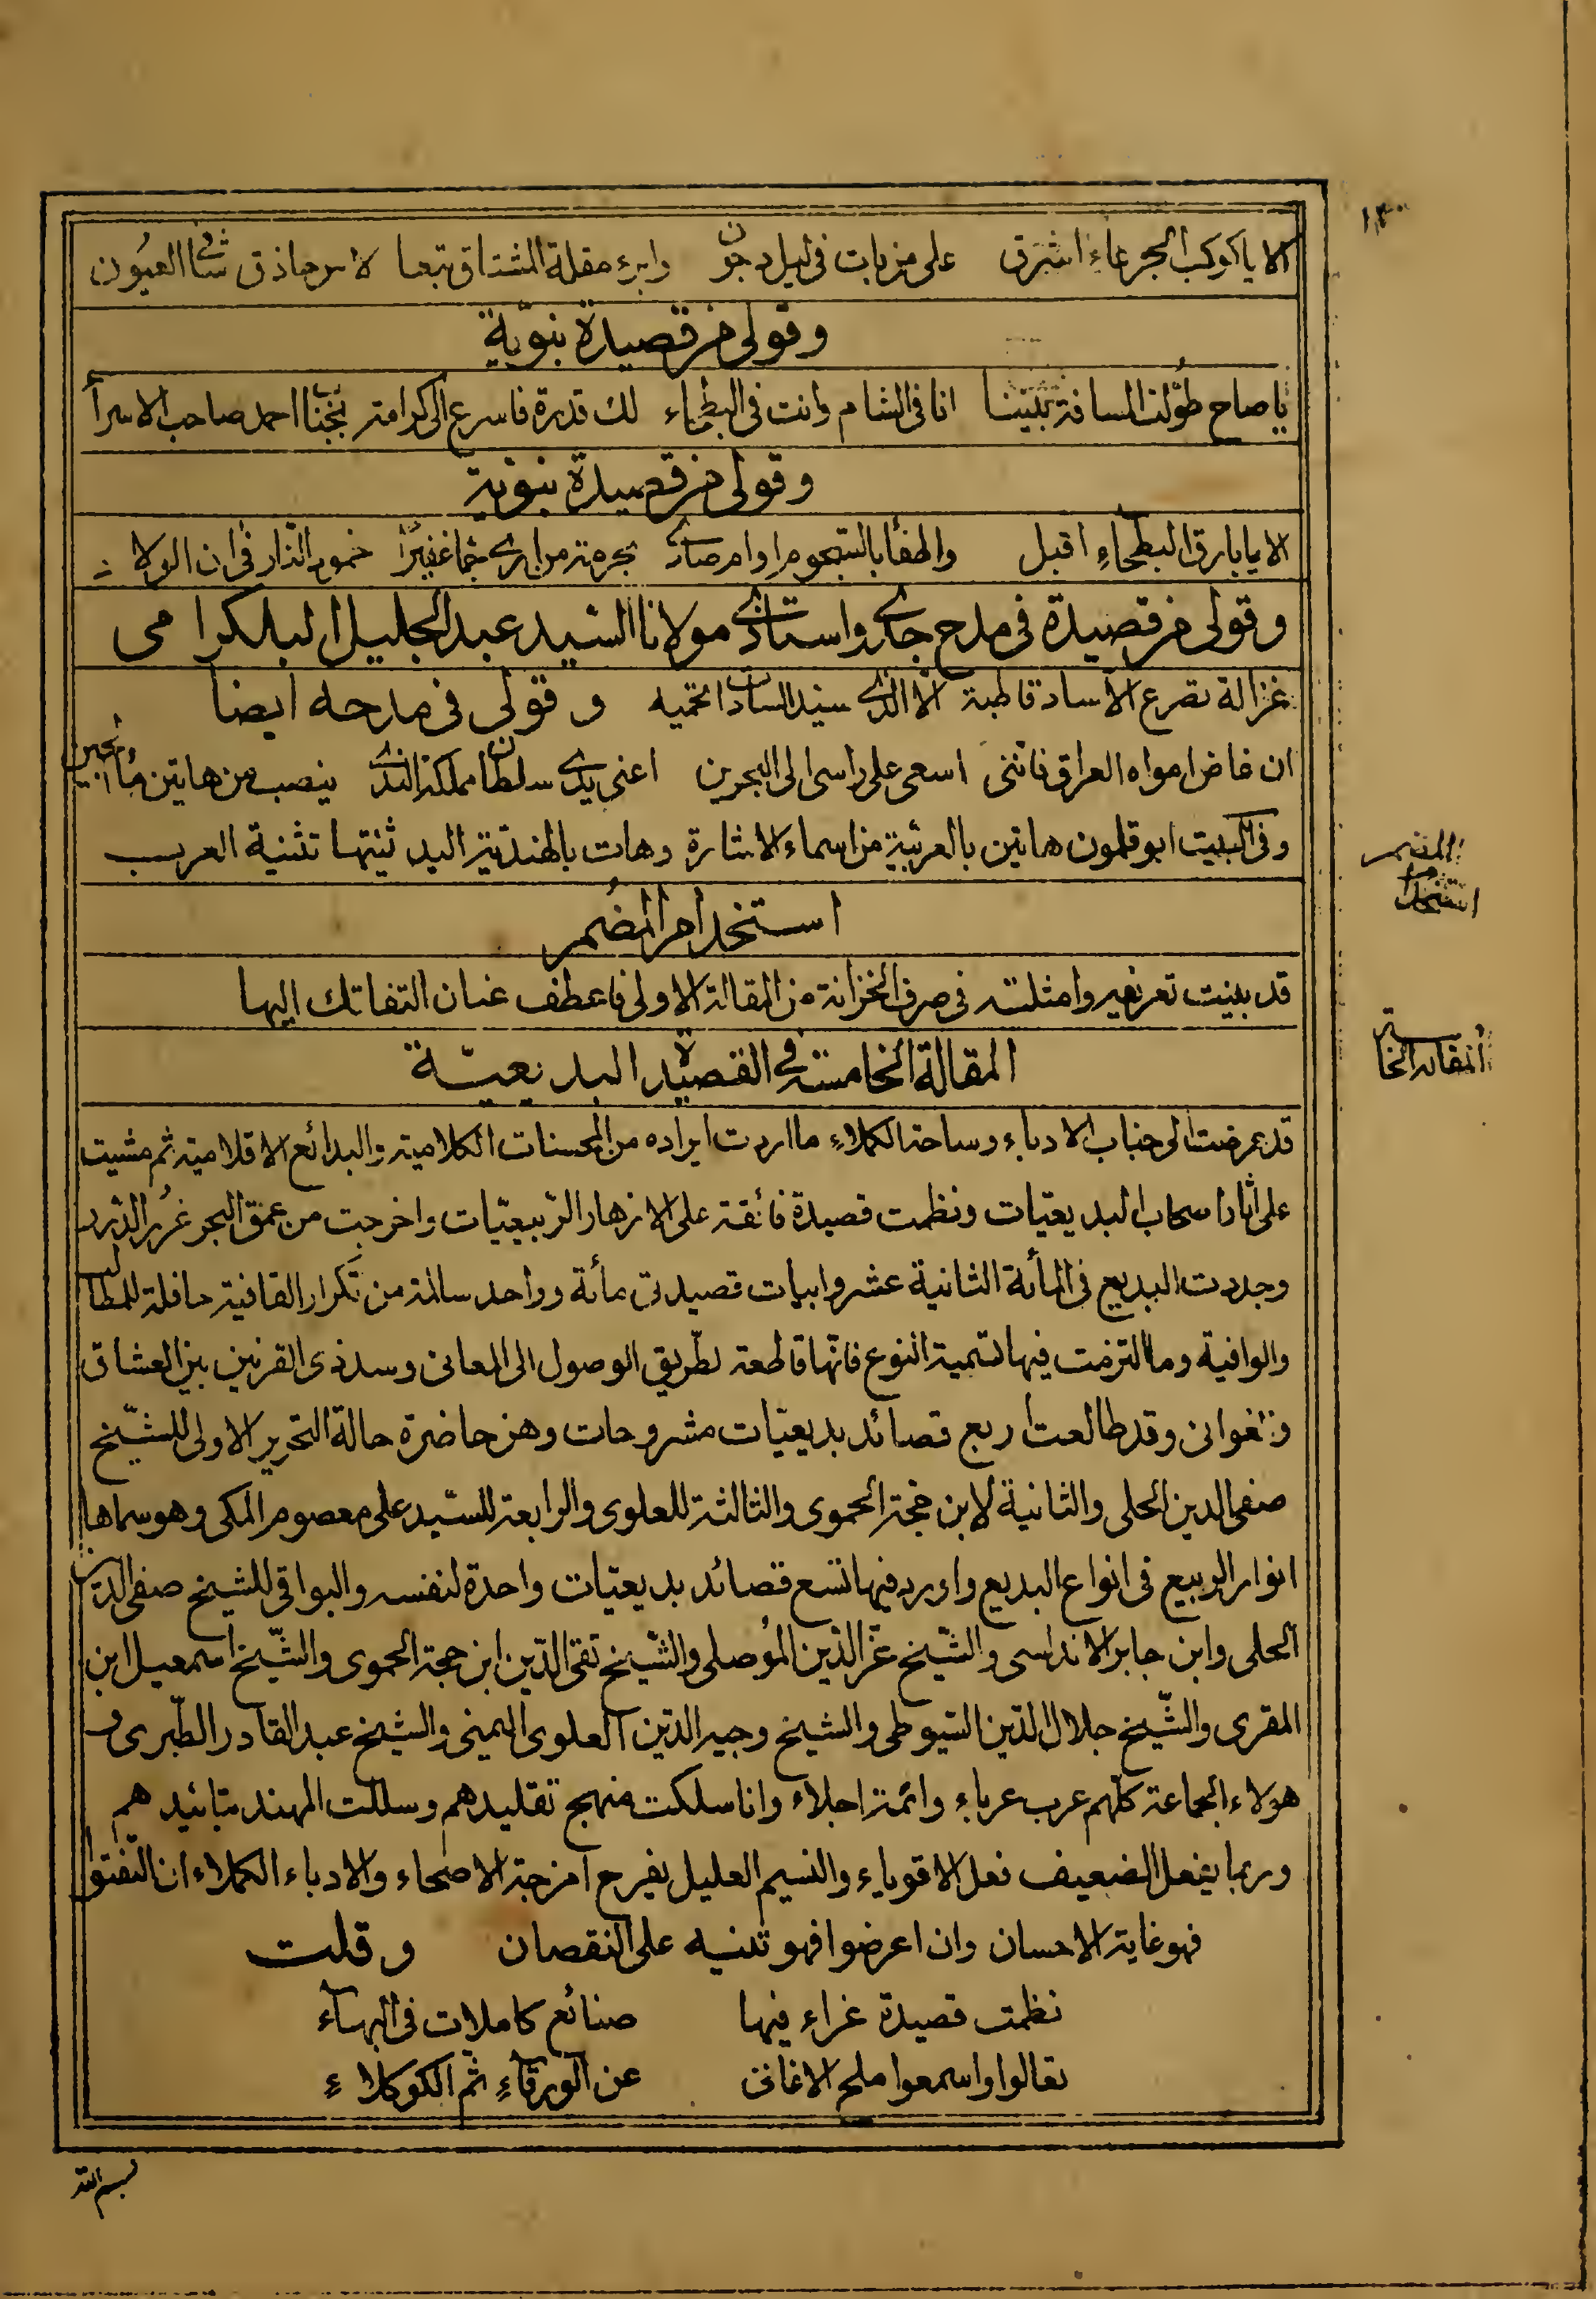 ١٣٠
الا يا كوكب الجرعاء اشرق على من بات فى ليل دجون وابرء مقلة المشتاق تبعا لامر حاذق شاء العيون
وقولى من قصيدة نبوية
يا صاح طولت المسافة بيننا انا فى الشام وانت فى البطحاء لك قدرة فاسرع الى كرامة احمد صاحب الاسرا
وقولى من قصيدة نبوية
الا يا بارق البطحاء اقبل واطفأ بالسجوم اوام صادى بحرمة من ارى جما غفيرا خمود النار فى ان الولاد
وقولى من قصيدة فى مدح جدى واستاذى مولانا السيد عبد الجليل البلكرامى
غزالة تصرع الآساد قاطبة الا الذى سيد السادات تحميه وقولى فى مدحه ايضا
ان غاض امواه العراق فاننى اسعى على راسى الى البحرين اعنى يدى سلطان مملكة الندى ينصب من هاتين ماء
وفى البيت ابو قلمون هاتين بالعربية من اسماء الاشارة وهات بالهندية اليد ثنتها تثنية العرب
استخدام المضمر
المضمر
استخدام
قد بينت تعريفه وامثلته فى صرف الخزانة من المقالة الاولى فاعطف عنان التفاتك اليها
المقالة الخامسة فى القصيدة البديعية
المقالة الخامسة
قد عرضت الى جناب الادباء وساحة الكملاء ما اردت ايراده من المحسنات الكلامية والبدائع الاقلامية ثم مشيت
على آثار اصحاب البديعيات ونظمت قصيدة فائقة على الازهار الربيعيات واخرجت من عمق البحر غرر الدرر
وجددت البديع فى المأة الثانية عشر وابيات قصيدتى مأة وواحد سالمة من تكرار القافية حافلة للمطالب
والوافية وما التزمت فيها تسمية النوع فانها قاطعة لطريق الوصول الى المعانى وسد ذى القرنين بين العشاق
والغوانى وقد طالعت اربع قصائد بديعيات مشروحات وهن حاضرة حالة التحرير الاولى للشيخ
صفى الدين الحلى والثانية لابن حجة الحموى والثالثة للعلوى والرابعة للسيد على معصوم المكى وهو سماها
انوار الربيع فى انواع البديع واورد فيها تسع قصائد بديعيات واحدة لنفسه والبواقى للشيخ صفى الدين
الحلى وابن جابر الاندلسى والشيخ عز الدين الموصلى والشيخ تقى الدين ابن حجة الحموى والشيخ اسمعيل ابن
المقرى والشيخ جلال الدين السيوطى والشيخ وجيه الدين العلوى اليمنى والشيخ عبد القادر الطبرى و
هولاء الجماعة كلهم عرب عرباء وائمة اجلاء وانا سلكت منهج تقليدهم وسللت المهند بتائيدهم
وربما يفعل الضعيف فعل الاقوياء والنسيم العليل يفرح امزجة الاصحاء والادباء الكملاء ان التفتوا
فهو غاية الاحسان وان اعرضوا فهو تنبيه على النقصان وقلت
نظمت قصيدة غراء فيها صنائع كاملات فى البهاء
تعالوا واسمعوا ملح الاغانى عن الورقاء ثم الكوكلاء
بسم الله